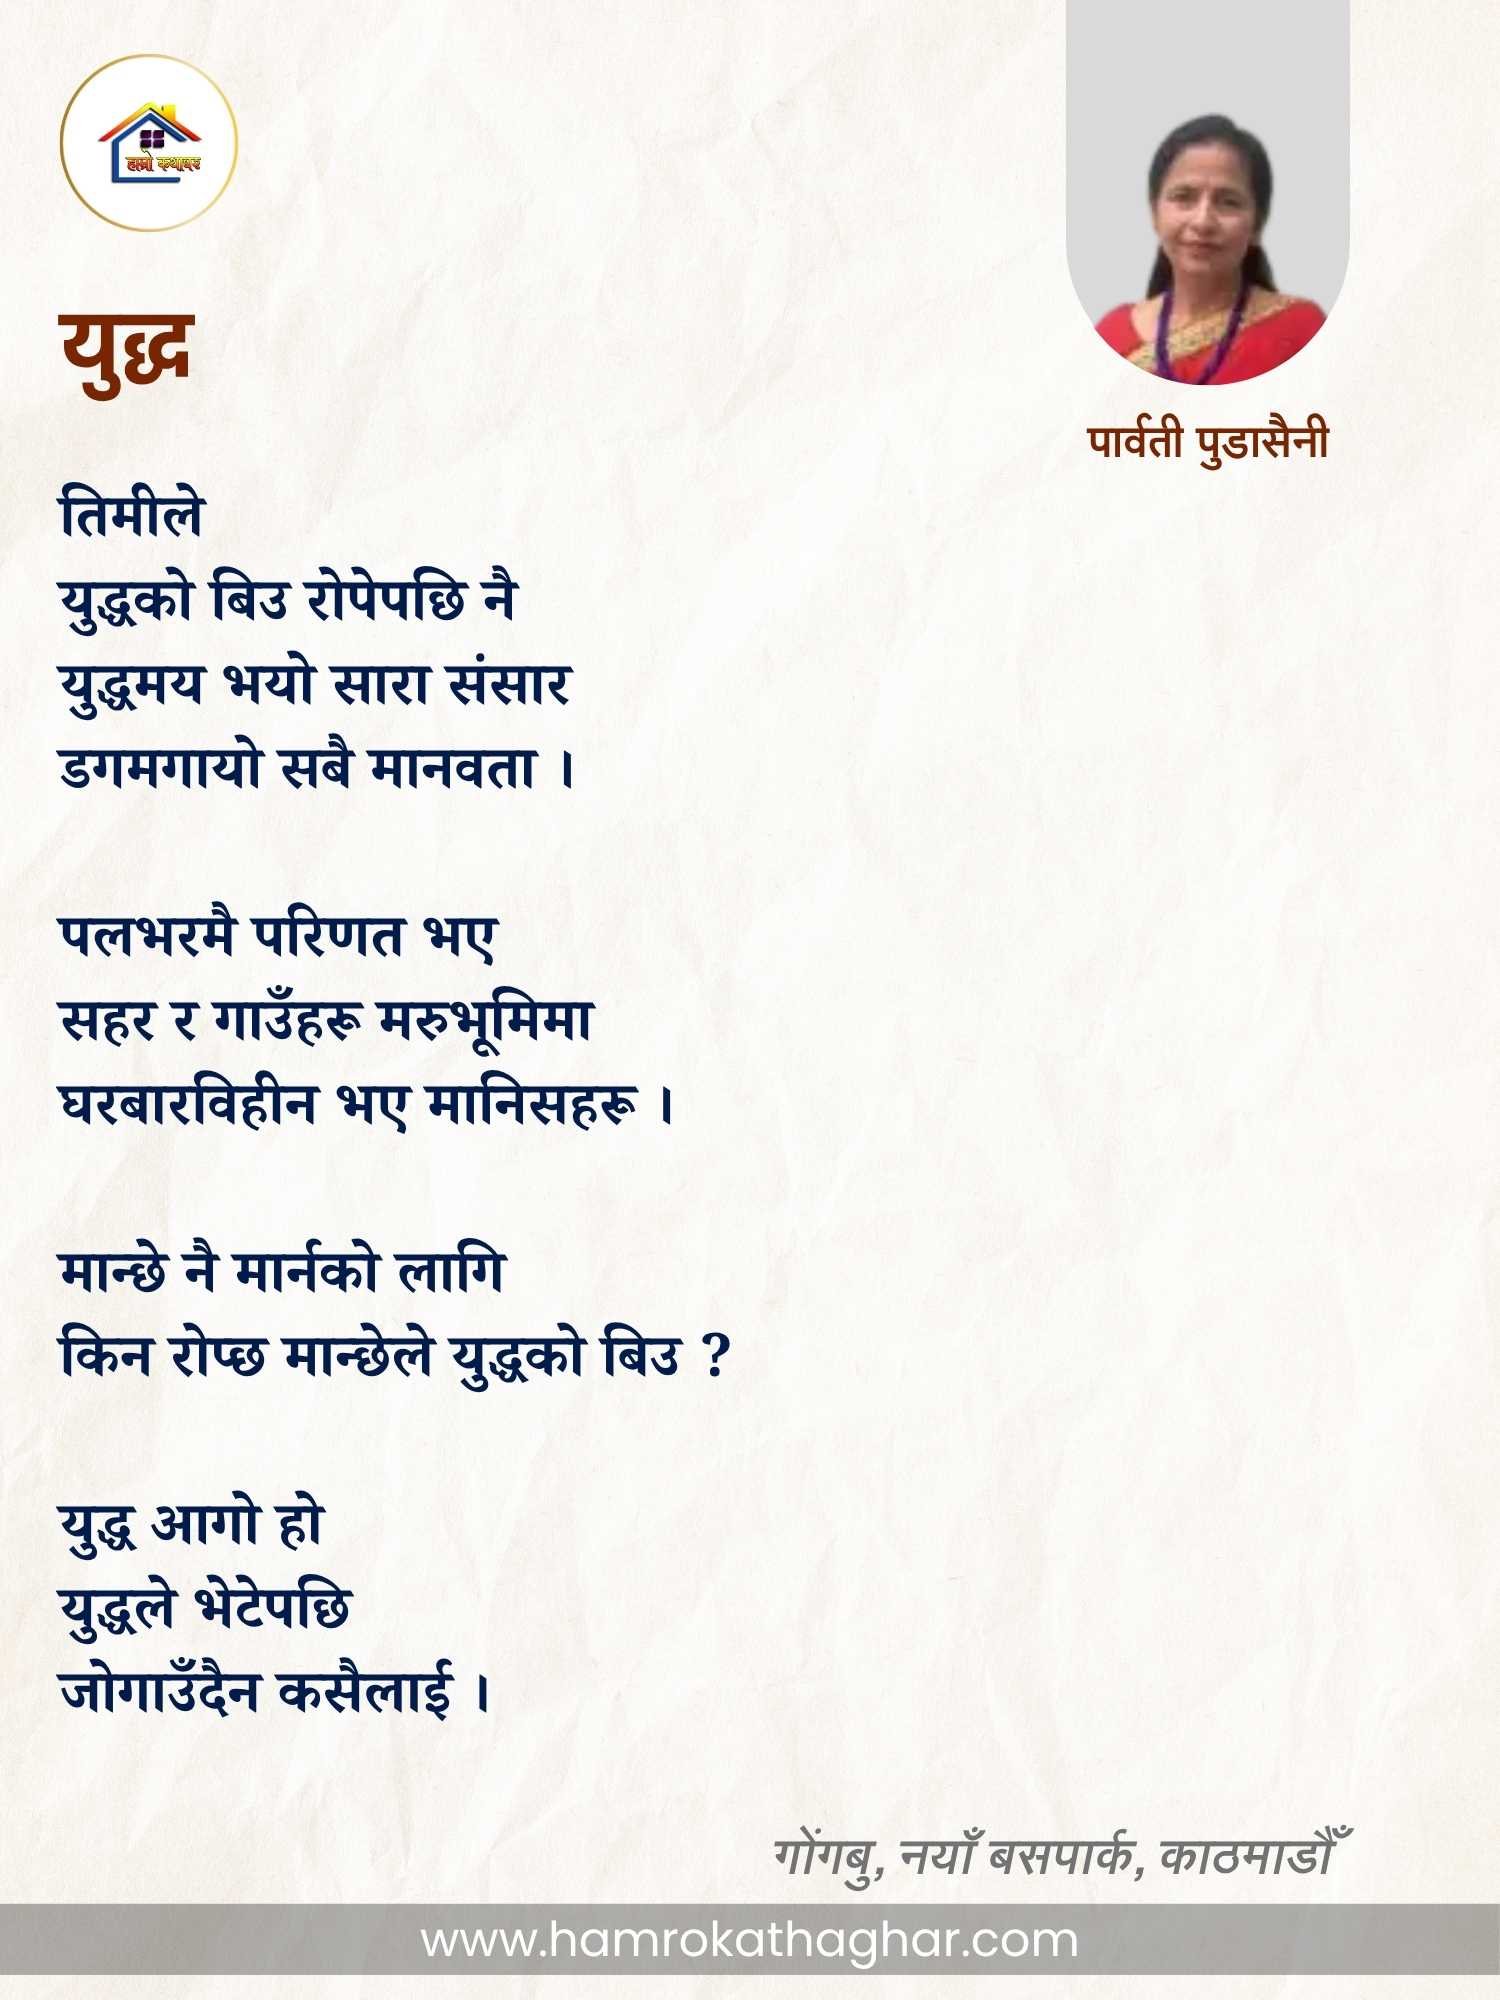 हाम्रो कथाघर
युद्ध
पार्वती पुडासैनी
तिमीले
युद्धको बिउ रोपेपछि नै
युद्धमय भयो सारा संसार
डगमगायो सबै मानवता ।
पलभरमै परिणत भए
सहर र गाउँहरू मरुभूमिमा
घरबारविहीन भए मानिसहरू ।
मान्छे नै मार्नको लागि
किन रोप्छ मान्छेले युद्धको बिउ ?
युद्ध आगो हो
युद्धले भेटेपछि
जोगाउँदैन कसैलाई ।
गोंगबु, नयाँ बसपार्क, काठमाडौँ
www.hamrokathaghar.com